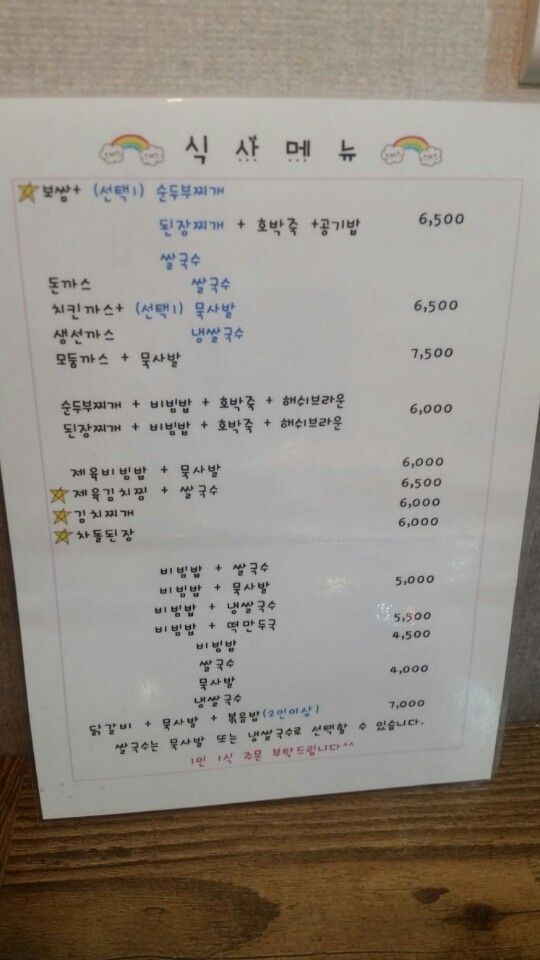 식사메뉴
보쌈+ (선택1) 순두부찌개
된장찌개 + 호박죽 +공기밥 6,500
쌀국수
돈까스 쌀국수
치킨까스+ (선택1) 묵사발 6,500
생선까스 냉쌀국수
모둠까스 + 묵사발 7,500
순두부찌개 + 비빔밥 + 호박죽 + 해쉬브라운 6,000
된장찌개 + 비빔밥 + 호박죽 + 해쉬브라운
제육비빔밥 + 묵사발 6,000
제육김치찜 + 쌀국수 6,500
김치찌개 6,000
차돌된장 6,000
비빔밥 + 쌀국수
비빔밥 + 묵사발 5,000
비빔밥 + 냉쌀국수
비빔밥 + 떡만두국 5,500
비빔밥 4,500
쌀국수
묵사발 4,000
냉쌀국수
닭갈비 + 묵사발 + 볶음밥(2인이상) 7,000
쌀국수는 묵사발 또는 냉쌀국수로 선택할 수 있습니다.
1인 1식 주문 부탁드립니다^^